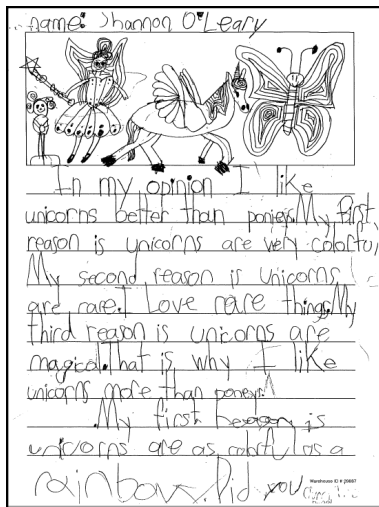 name: Shannon O'Leary
In my opinion I like
unicorns better than poneys.My first
reason is unicorns are very colorful,
My second reason is Unicorns
are rare.I Love rare things.My
third reason is unicorns are
magical.That is why I like
unicorns more than poneys.
My first is
unicorns are as colorful as a
rainbow. Did you
Warehouse ID #